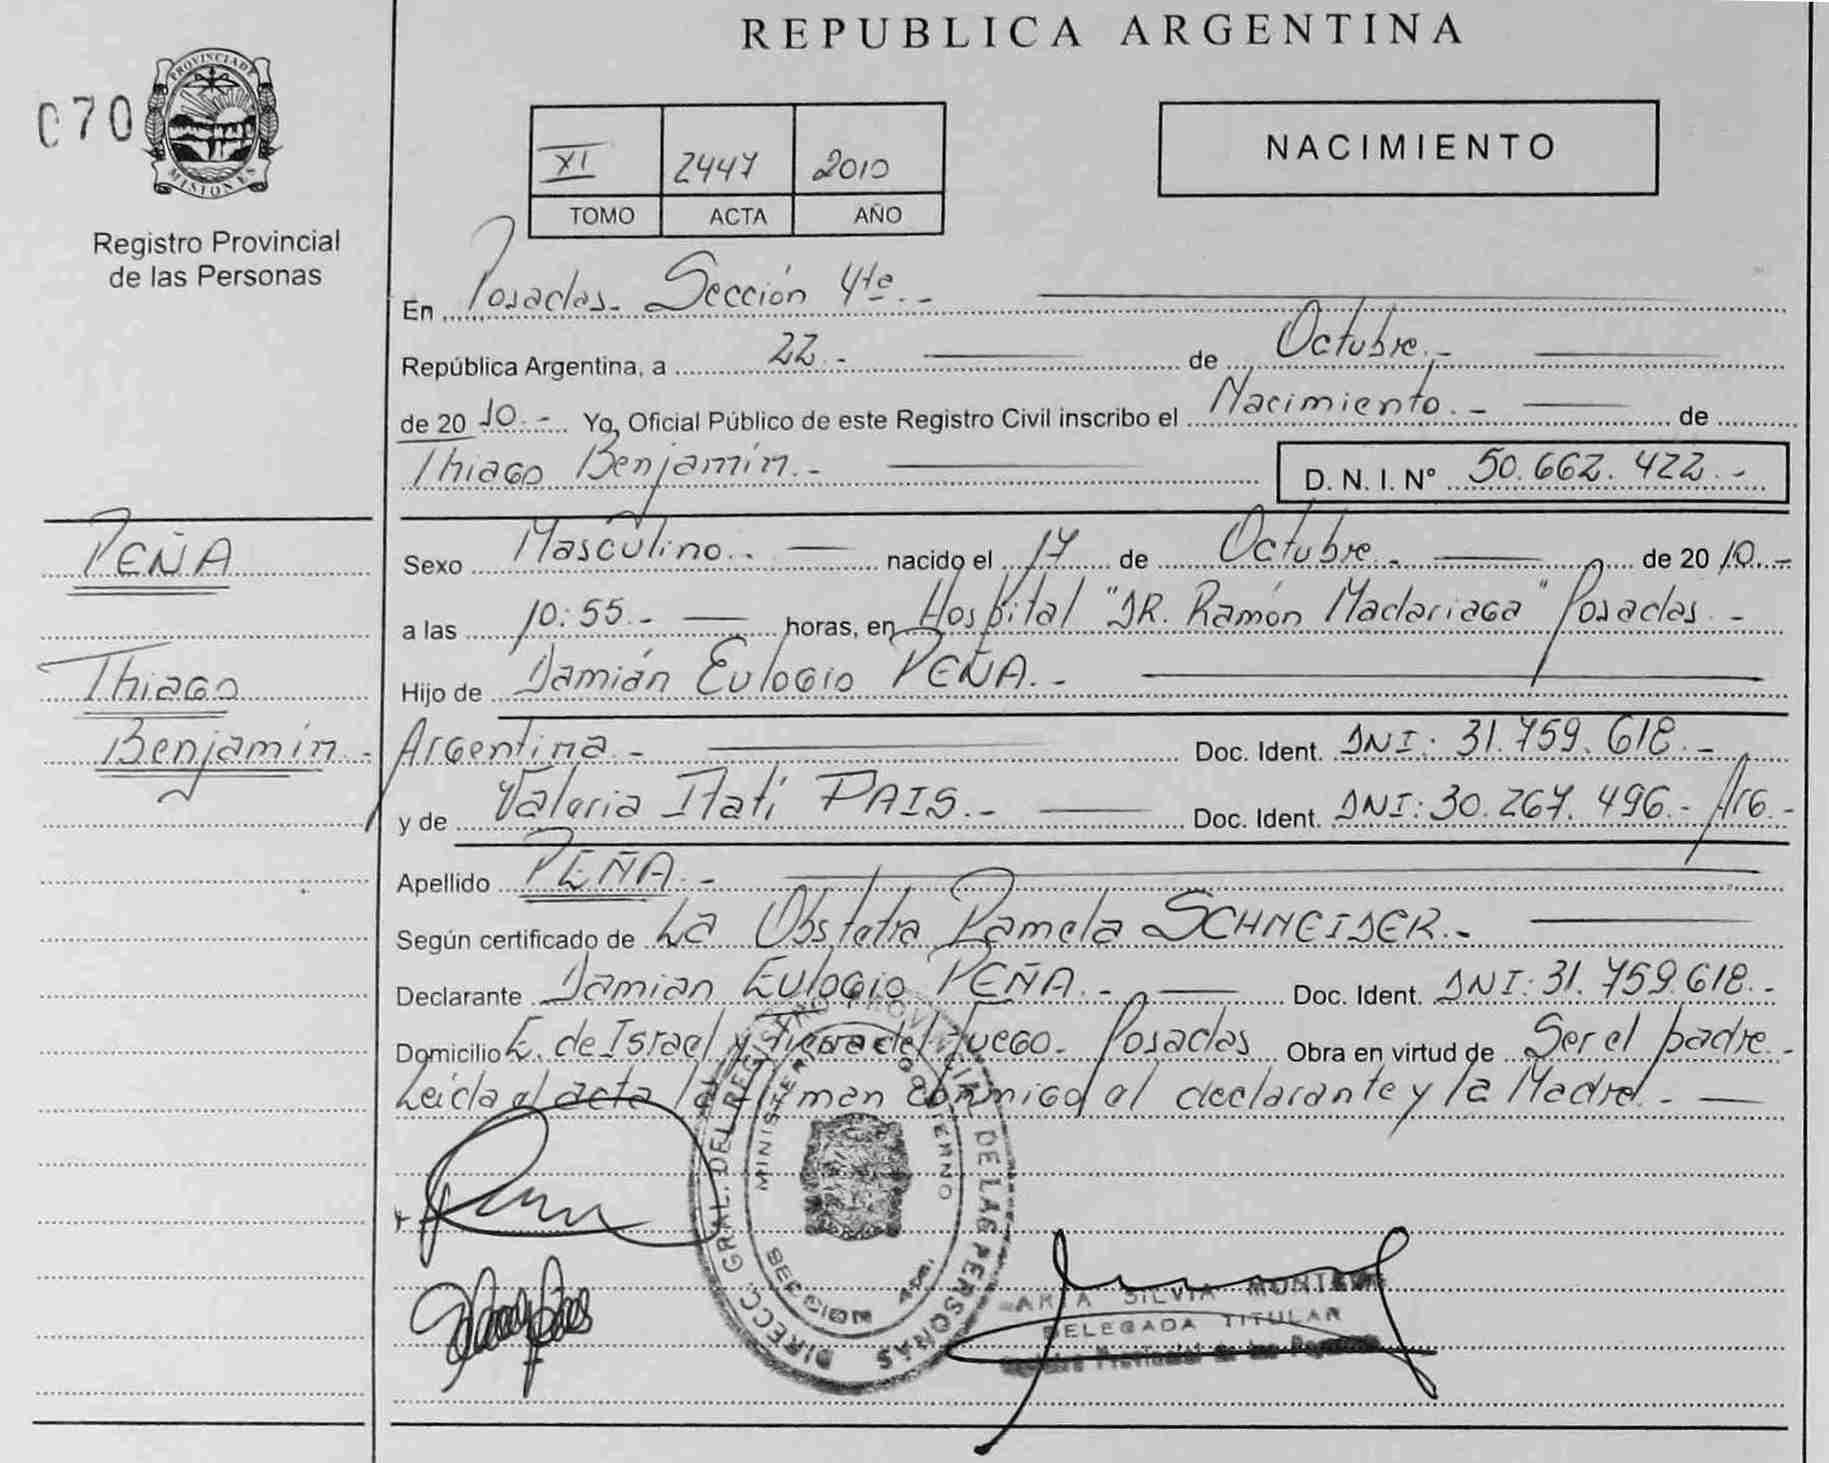 REPUBLICA ARGENTINA
070
PROVINCIA DE MISIONES
Registro Provincial
de las Personas
XI 2447 2010
TOMO ACTA AÑO
NACIMIENTO
En Posadas- Sección 4ta.-
República Argentina, a 22.- de Octubre.-
de 2010.- Yo, Oficial Público de este Registro Civil inscribo el Nacimiento.- de
Thiago Benjamín.- D. N. I. Nº 50.662.422.-
PEÑA
Thiago
Benjamín.-
Sexo Masculino.- nacido el 17 de Octubre.- de 2010.-
a las 10:55.- horas, en Hospital "DR. Ramón Madariaga" Posadas.-
Hijo de Damián Eulogio PEÑA.-
Argentina.- Doc. Ident. DNI: 31.759.618.-
y de Valeria Itatí PAIS.- Doc. Ident. DNI: 30.267.496.- Arg.-
Apellido PEÑA.-
Según certificado de La Obstetra Pamela SCHNEIDER.-
Declarante Damian Eulogio PEÑA.- Doc. Ident. DNI: 31.759.618.-
Domicilio E. de Israel y tierra del fuego- Posadas Obra en virtud de Ser el padre.-
Leida el acta la firman conmigo el declarante y la Madre.-
DIRECC. GRAL. DEL REGISTRO PROVINCIAL DE LAS PERSONAS
MINISTERIO GOBIERNO
SECCION 4ta.
SILVIA
DELEGADA TITULAR
Registro Provincial de las Personas